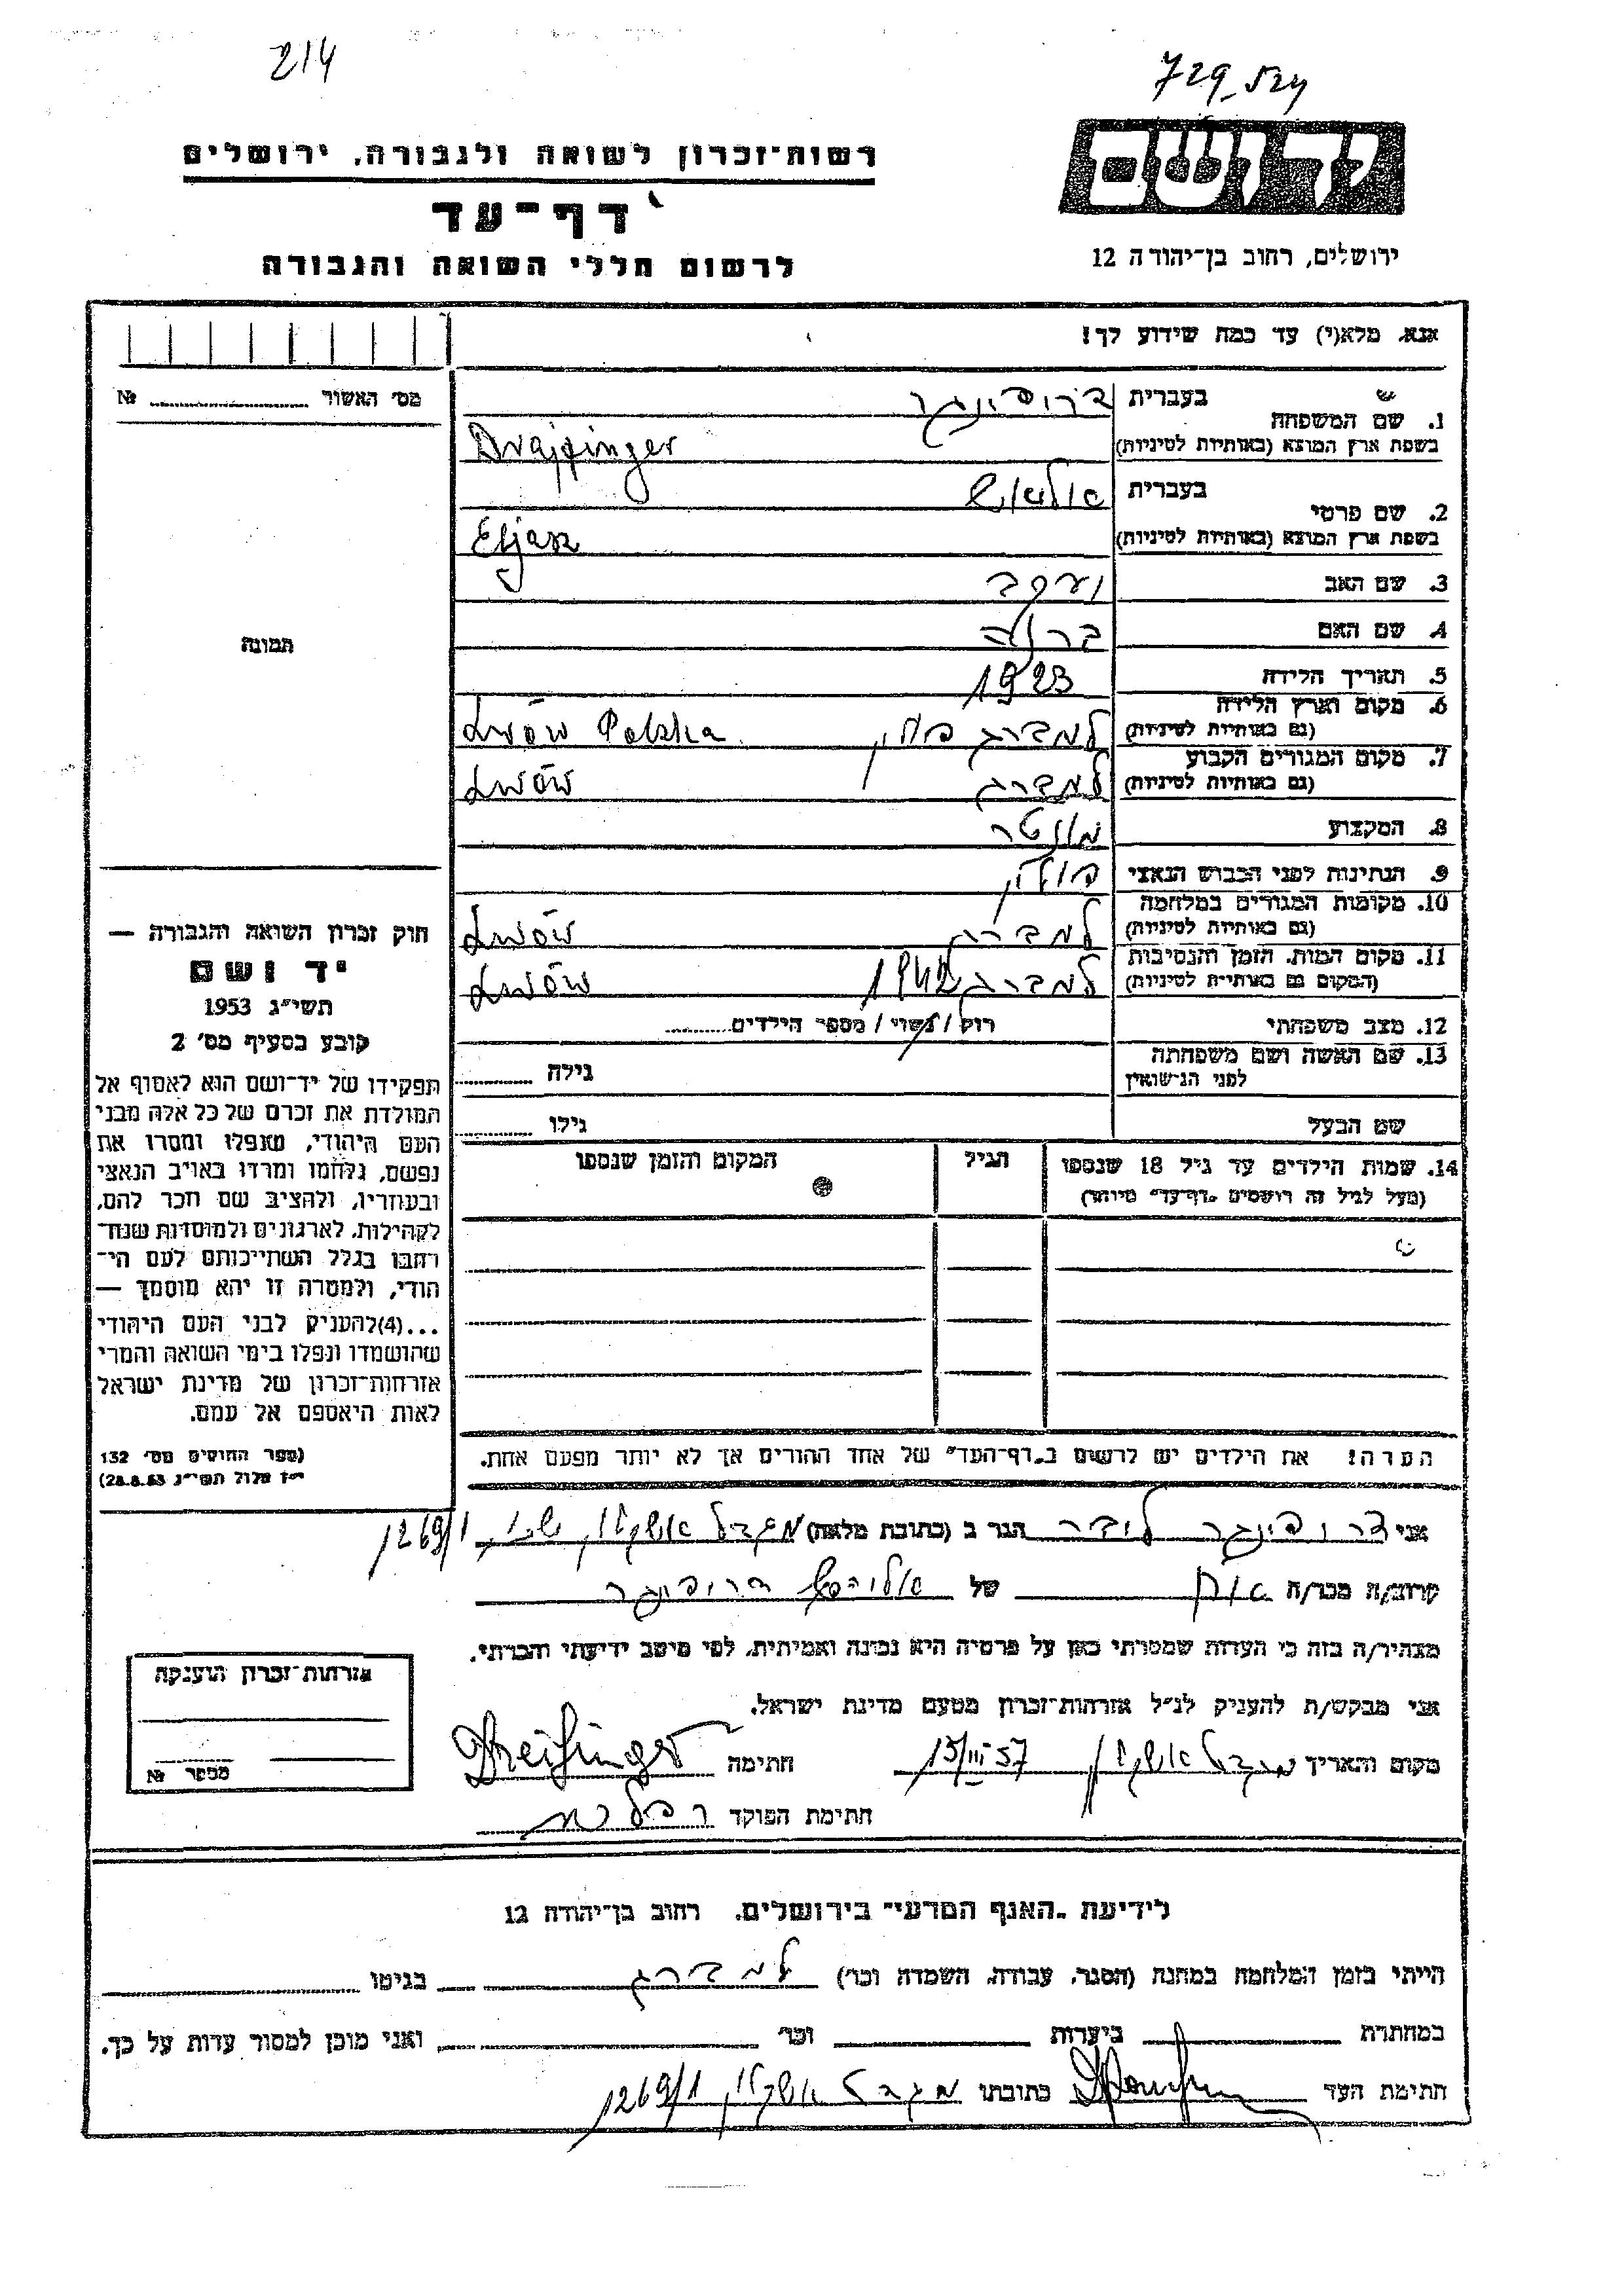 214
729-524
יד ושם
רשות־זכרון לשואה ולגבורה, ירושלים
דף־עד
לרשום חללי השואה והגבורה
ירושלים, רחוב בן־יהודה 12
אנא, מלא(י) עד כמה שידוע לך!
מס׳ האשור № ........
1. שם המשפחה
בעברית דרייפינגר
בשפת ארץ המוצא (באותיות לטיניות) Drajfinger
2. שם פרטי
בעברית אליאש
בשפת ארץ המוצא (באותיות לטיניות) Eljasz
3. שם האב יעקב
4. שם האם ברוניה
5. תאריך הלידה 1923
6. מקום וארץ הלידה (גם באותיות לטיניות) למברג פולין Lwów Polska
7. מקום המגורים הקבוע (גם באותיות לטיניות) למברג Lwów
8. המקצוע מונטר
9. הנתינות לפני הכבוש הנאצי פולין
10. מקומות המגורים במלחמה (גם באותיות לטיניות) למברג Lwów
11. מקום המות, הזמן והנסיבות (המקום גם באותיות לטיניות) למברג 1942 Lwów
12. מצב משפחתי רוק / נשוי / מספר הילדים ........
13. שם האשה ושם משפחתה לפני הנישואין גילה ........
שם הבעל גילו ........
14. שמות הילדים עד גיל 18 שנספו (מעל לגיל זה רושמים „דף־עד״ מיוחד)
הגיל
המקום והזמן שנספו
הערה: את הילדים יש לרשום ב„דף־העד״ של אחד ההורים אך לא יותר מפעם אחת.
תמונה
חוק זכרון השואה והגבורה —
יד ושם
תשי״ג 1953
קובע בסעיף מס׳ 2
תפקידו של יד־ושם הוא לאסוף אל
המולדת את זכרם של כל אלה מבני
העם היהודי, שנפלו ומסרו את
נפשם, נלחמו ומרדו באויב הנאצי
ובעוזריו, ולהציב שם וזכר להם,
לקהילות, לארגונים ולמוסדות שנח־
רבו בגלל השתייכותם לעם הי־
הודי, ולמטרה זו יהא מוסמך —
...(4) להעניק לבני העם היהודי
שהושמדו ונפלו בימי השואה והמרי
אזרחות־זכרון של מדינת ישראל
לאות היאספם אל עמם.
(ספר החוקים מס׳ 132
י״ז אלול תשי״ג 28.8.53)
אני דרייפינגר הגר ב (כתובת מלאה) מגדל אשקלון 1269/1
קרוב/ה מכר/ה אח של דרייפינגר
מצהיר/ה בזה כי העדות שמסרתי כאן על פרטיה היא נכונה ואמיתית, לפי מיטב ידיעתי והכרתי.
אני מבקש/ת להעניק לנ״ל אזרחות־זכרון מטעם מדינת ישראל.
מקום ותאריך מגדל אשקלון 15/III 57 חתימה Dreifinger
חתימת הפוקד
אזרחות־זכרון הוענקה
מספר №
לידיעת „האגף המדעי״ בירושלים, רחוב בן־יהודה 12
הייתי בזמן המלחמה במחנה (הסגר, עבודה, השמדה וכו׳) למברג בגיטו
במחתרת ביערות וכו׳ ואני מוכן למסור עדות על כך.
חתימת העד כתובתו מגדל אשקלון 1269/1